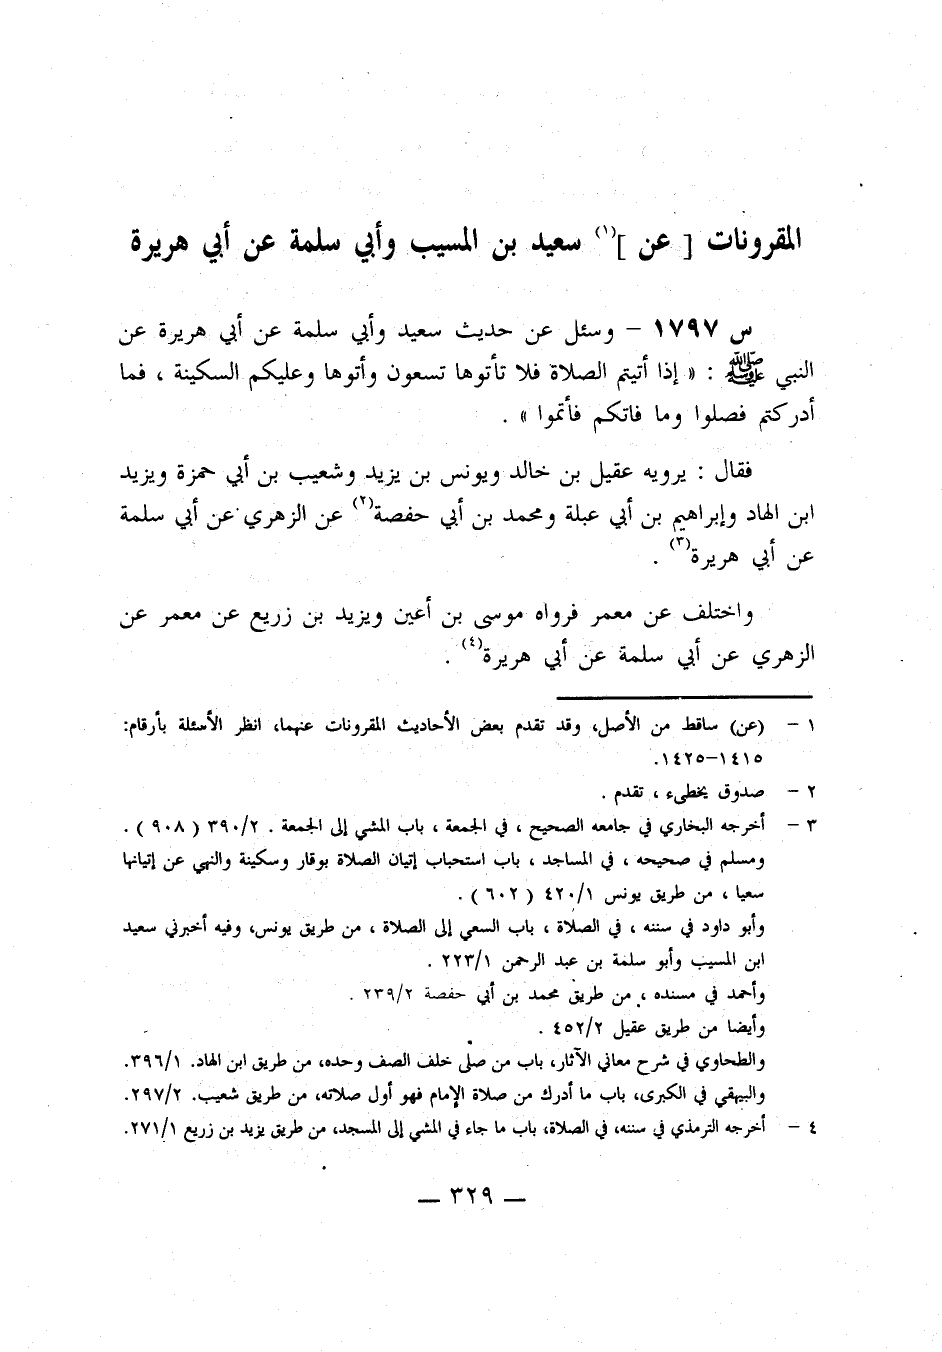 المقرونات [ عن ](١) سعيد بن المسيب وأبي سلمة عن أبي هريرة
س ١٧٩٧ – وسئل عن حديث سعيد وأبي سلمة عن أبي هريرة عن
النبي ﷺ : « إذا أتيتم الصلاة فلا تأتوها تسعون وأتوها وعليكم السكينة ، فما
أدركتم فصلوا وما فاتكم فأتموا » .
فقال : يرويه عقيل بن خالد ويونس بن يزيد وشعيب بن أبي حمزة ويزيد
ابن الهاد وإبراهيم بن أبي عبلة ومحمد بن أبي حفصة(٢) عن الزهري عن أبي سلمة
عن أبي هريرة(٣) .
واختلف عن معمر فرواه موسى بن أعين ويزيد بن زريع عن معمر عن
الزهري عن أبي سلمة عن أبي هريرة(٤) .
١ – (عن) ساقط من الأصل، وقد تقدم بعض الأحاديث المقرونات عنهما، انظر الأسئلة بأرقام:
١٤١٥–١٤٢٥.
٢ – صدوق يخطىء ، تقدم .
٣ – أخرجه البخاري في جامعه الصحيح ، في الجمعة ، باب المشي إلى الجمعة . ٣٩٠/٢ ( ٩٠٨ ) .
ومسلم في صحيحه ، في المساجد ، باب استحباب إتيان الصلاة بوقار وسكينة والنهي عن إتيانها
سعيا ، من طريق يونس ٤٢٠/١ ( ٦٠٢ ) .
وأبو داود في سننه ، في الصلاة ، باب السعي إلى الصلاة ، من طريق يونس، وفيه أخبرني سعيد
ابن المسيب وأبو سلمة بن عبد الرحمن ٢٢٣/١ .
وأحمد في مسنده ، من طريق محمد بن أبي حفصة ٢٣٩/٢ .
وأيضا من طريق عقيل ٤٥٢/٢ .
والطحاوي في شرح معاني الآثار، باب من صلى خلف الصف وحده، من طريق ابن الهاد. ٣٩٦/١.
والبيهقي في الكبرى، باب ما أدرك من صلاة الإمام فهو أول صلاته، من طريق شعيب. ٢٩٧/٢.
٤ – أخرجه الترمذي في سننه، في الصلاة، باب ما جاء في المشي إلى المسجد، من طريق يزيد بن زريع ٢٧١/١.
— ٣٢٩ —